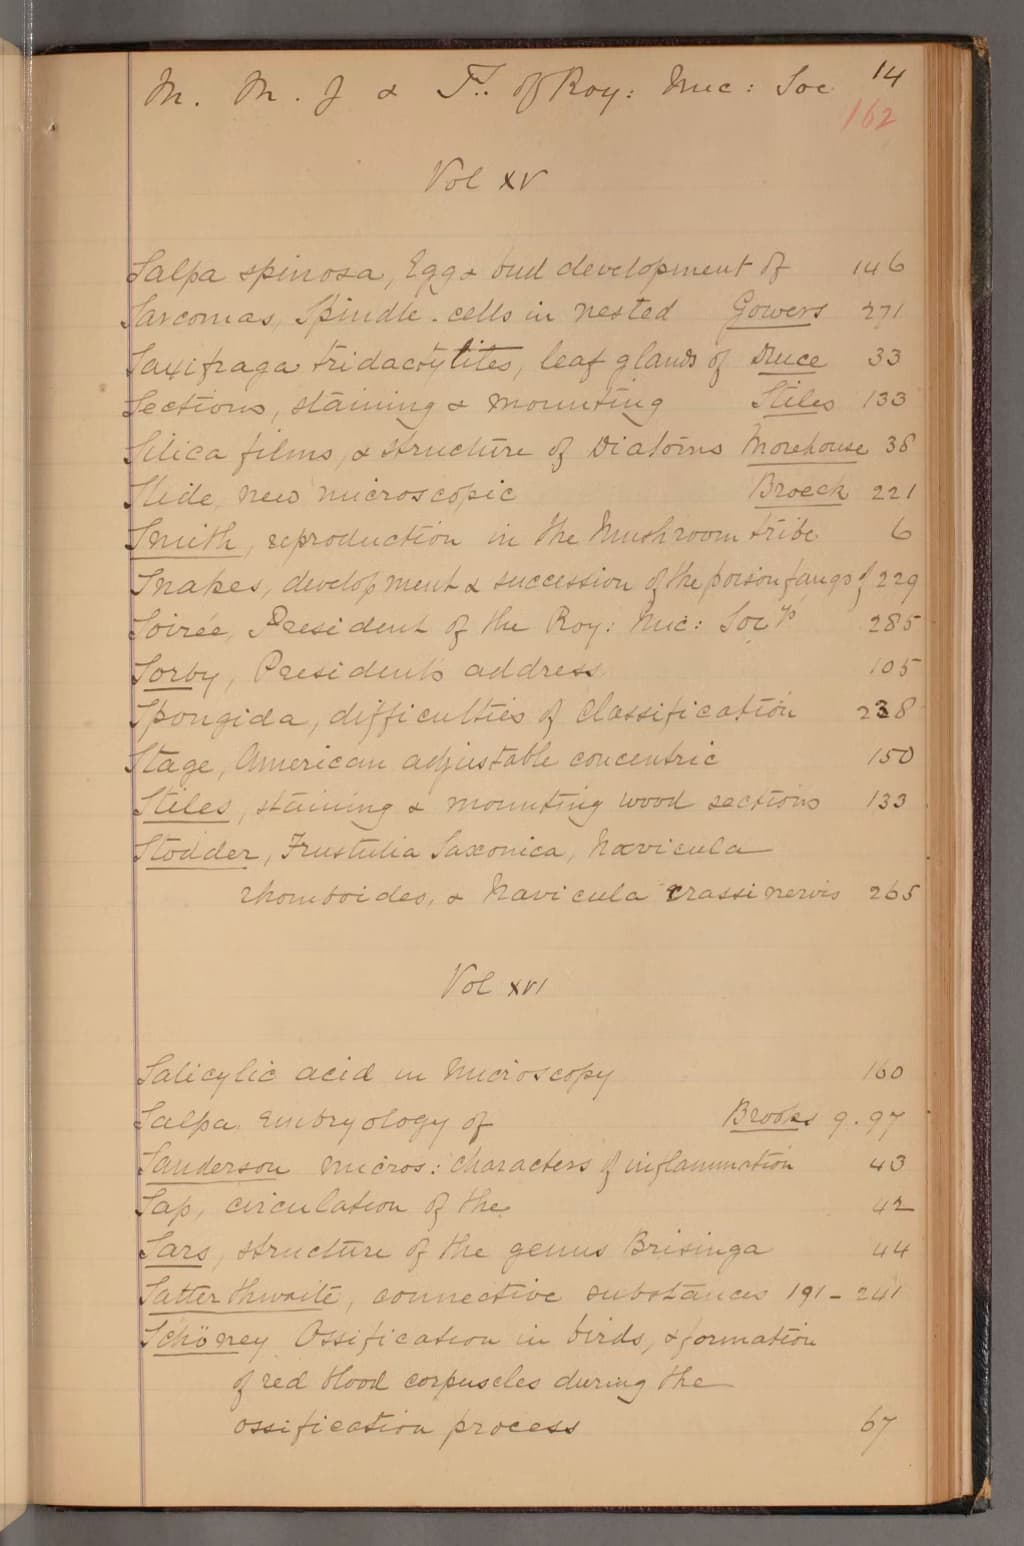 M. M. J & Ts. of Roy: Mic: Soc 14
162
Vol XV
Salpa spinosa, Egg & bud development of 146
Sarcomas, Spindle-cells in nested Gowers 271
Saxifraga tridactylites, leaf glands of Druce 33
Sections, staining & mounting Stiles 133
Silica films, & structure of Diatoms Morehouse 38
Slide, new microscopic Broeck 221
Smith, reproduction in the Mushroom tribe 6
Snakes, development & succession of the poison fangs of 229
Soirée, President of the Roy: Mic: Socys 285
Sorby, Presidents address 105
Spongida, difficulties of Classification 238
Stage, American adjustable concentric 150
Stiles, staining & mounting wood sections 133
Stodder, Frustulia Saxonica, Navicula
rhomboides, & Navicula crassinervis 265
Vol XVI
Salicylic acid in Microscopy 160
Salpa Embryology of Brooks 9.97
Sanderson micros: characters of inflammation 43
Sap, circulation of the 42
Sars, structure of the genus Brisinga 44
Satterthwaite, connective substances 191-241
Schöney Ossification in birds, & formation
of red blood corpuscles during the
ossification process 67